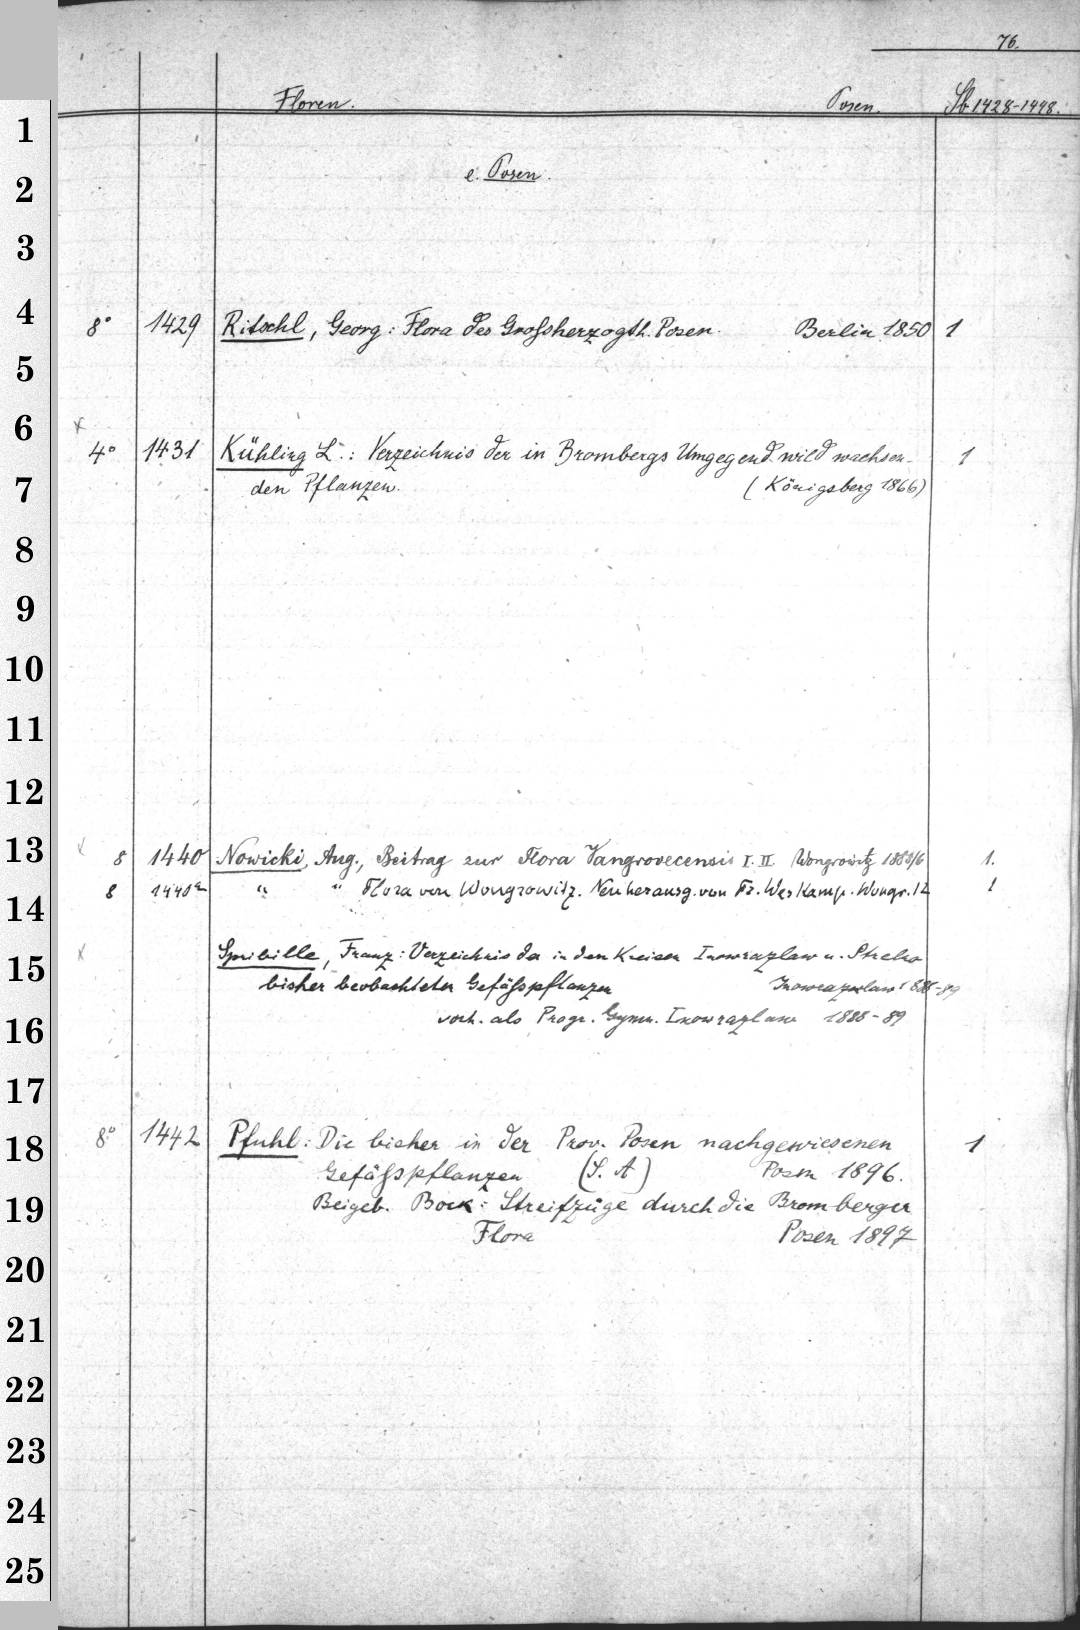 76.
Floren. Posen. Sb 1428-1448.
e. Posen.
8° 1429 Ritschl, Georg: Flora des Großherzogth. Posen. Berlin 1850 1
x
4° 1431 Kühling L.: Verzeichnis der in Brombergs Umgegend wild wachsen-
den Pflanzen. (Königsberg 1866) 1
x
8 1440 Nowicki, Aug., Beitrag zur Flora Vangrovecensis I. II Wongrowitz 1885/6 1.
8 1440a " " Flora von Wongrowitz. Neu herausg. von Fr. Weskamp. Wongr. 12 1
x
Spribille, Franz: Verzeichnis der in den Kreisen Inowrazlaw u. Strelno
bisher beobachteten Gefäßpflanzen Inowrazlaw 1888-89
vorh. als Progr. Gymn. Inowrazlaw 1888-89
8° 1442 Pfuhl: Die bisher in der Prov. Posen nachgewiesenen 1
Gefäßpflanzen (S. A) Posen 1896.
Beigeb. Bock: Streifzüge durch die Bromberger
Flora Posen 1897
1
2
3
4
5
6
7
8
9
10
11
12
13
14
15
16
17
18
19
20
21
22
23
24
25